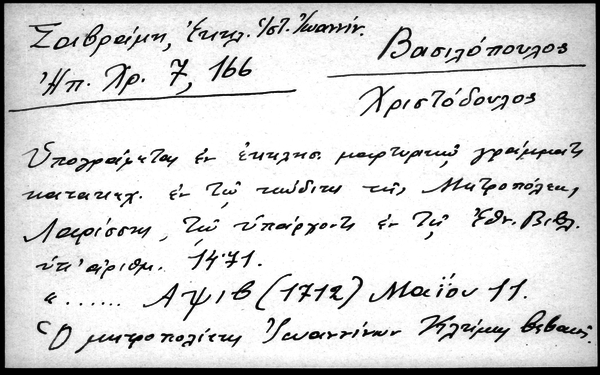 Σαβράμη, Ἐκκλ. Ἱστ. Ἰωαννίν.
Ἠπ. Χρ. 7, 166
Βασιλόπουλος
Χριστόδουλος
Ὑπογράφεται ἐν ἐκκλησ. μαρτυρικῷ γράμματι
καταχ. ἐν τῷ κώδικι τῆς Μητροπόλεως
Λαρίσσης, τῷ ὑπάρχοντι ἐν τῇ Ἐθν. Βιβλ.
ὑπ' ἀριθμ. 1471.
"...... ΑΨΙΒ (1712) Μαΐου 11.
Ὁ μητροπολίτης Ἰωαννίνων Κλήμης βεβαιοῖ.